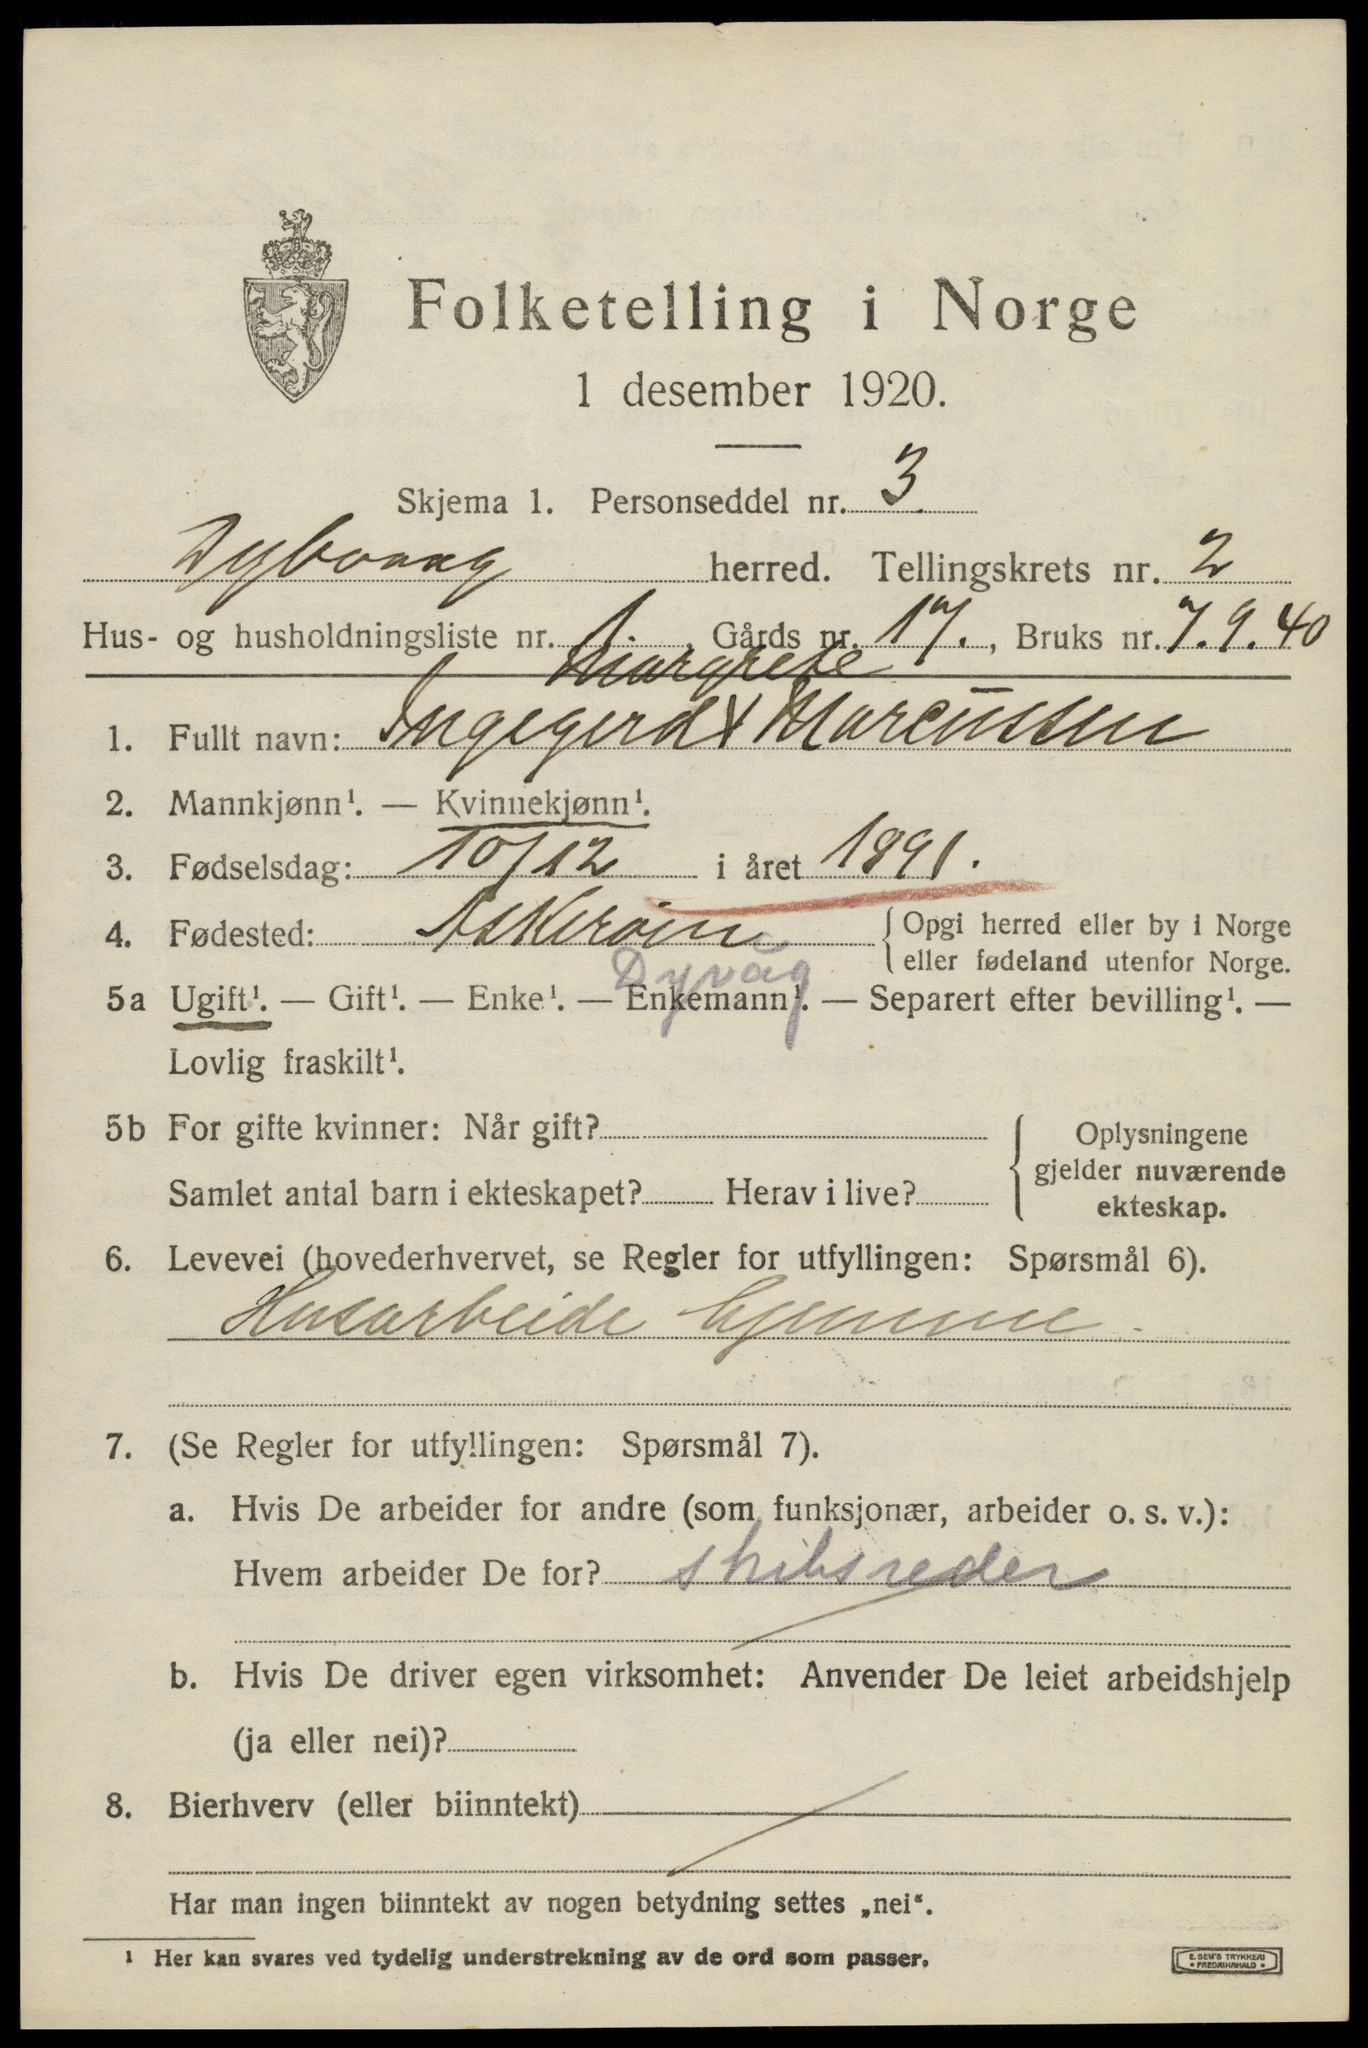 Folketelling i Norge
1 desember 1920.
Skjema 1. Personseddel nr. 3
Dybvaag herred. Tellingskrets nr. 2
Hus- og husholdningsliste nr. 1. , Gårds nr. 17. , Bruks nr. 7.9.40
Margrete
1. Fullt navn: Ingegerd x Marcussen
2. Mannkjønn¹. — Kvinnekjønn¹.
3. Fødselsdag: 10/12 i året 1891.
4. Fødested: Askerøen { Opgi herred eller by i Norge
eller fødeland utenfor Norge.
Dyvåg
5a Ugift¹. — Gift¹. — Enke¹. — Enkemann¹. — Separert efter bevilling¹. —
Lovlig fraskilt¹.
5b For gifte kvinner: Når gift?
Samlet antal barn i ekteskapet? Herav i live?
{ Oplysningene
gjelder nuværende
ekteskap.
6. Levevei (hovederhvervet, se Regler for utfyllingen: Spørsmål 6).
Husarbeide hjemme.
7. (Se Regler for utfyllingen: Spørsmål 7).
a. Hvis De arbeider for andre (som funksjonær, arbeider o. s. v.):
Hvem arbeider De for? skibsreder
b. Hvis De driver egen virksomhet: Anvender De leiet arbeidshjelp
(ja eller nei)?
8. Bierhverv (eller biinntekt)
Har man ingen biinntekt av nogen betydning settes „nei“.
¹ Her kan svares ved tydelig understrekning av de ord som passer.
E. SEM'S TRYKKERI
• FREDRIKSHALD •